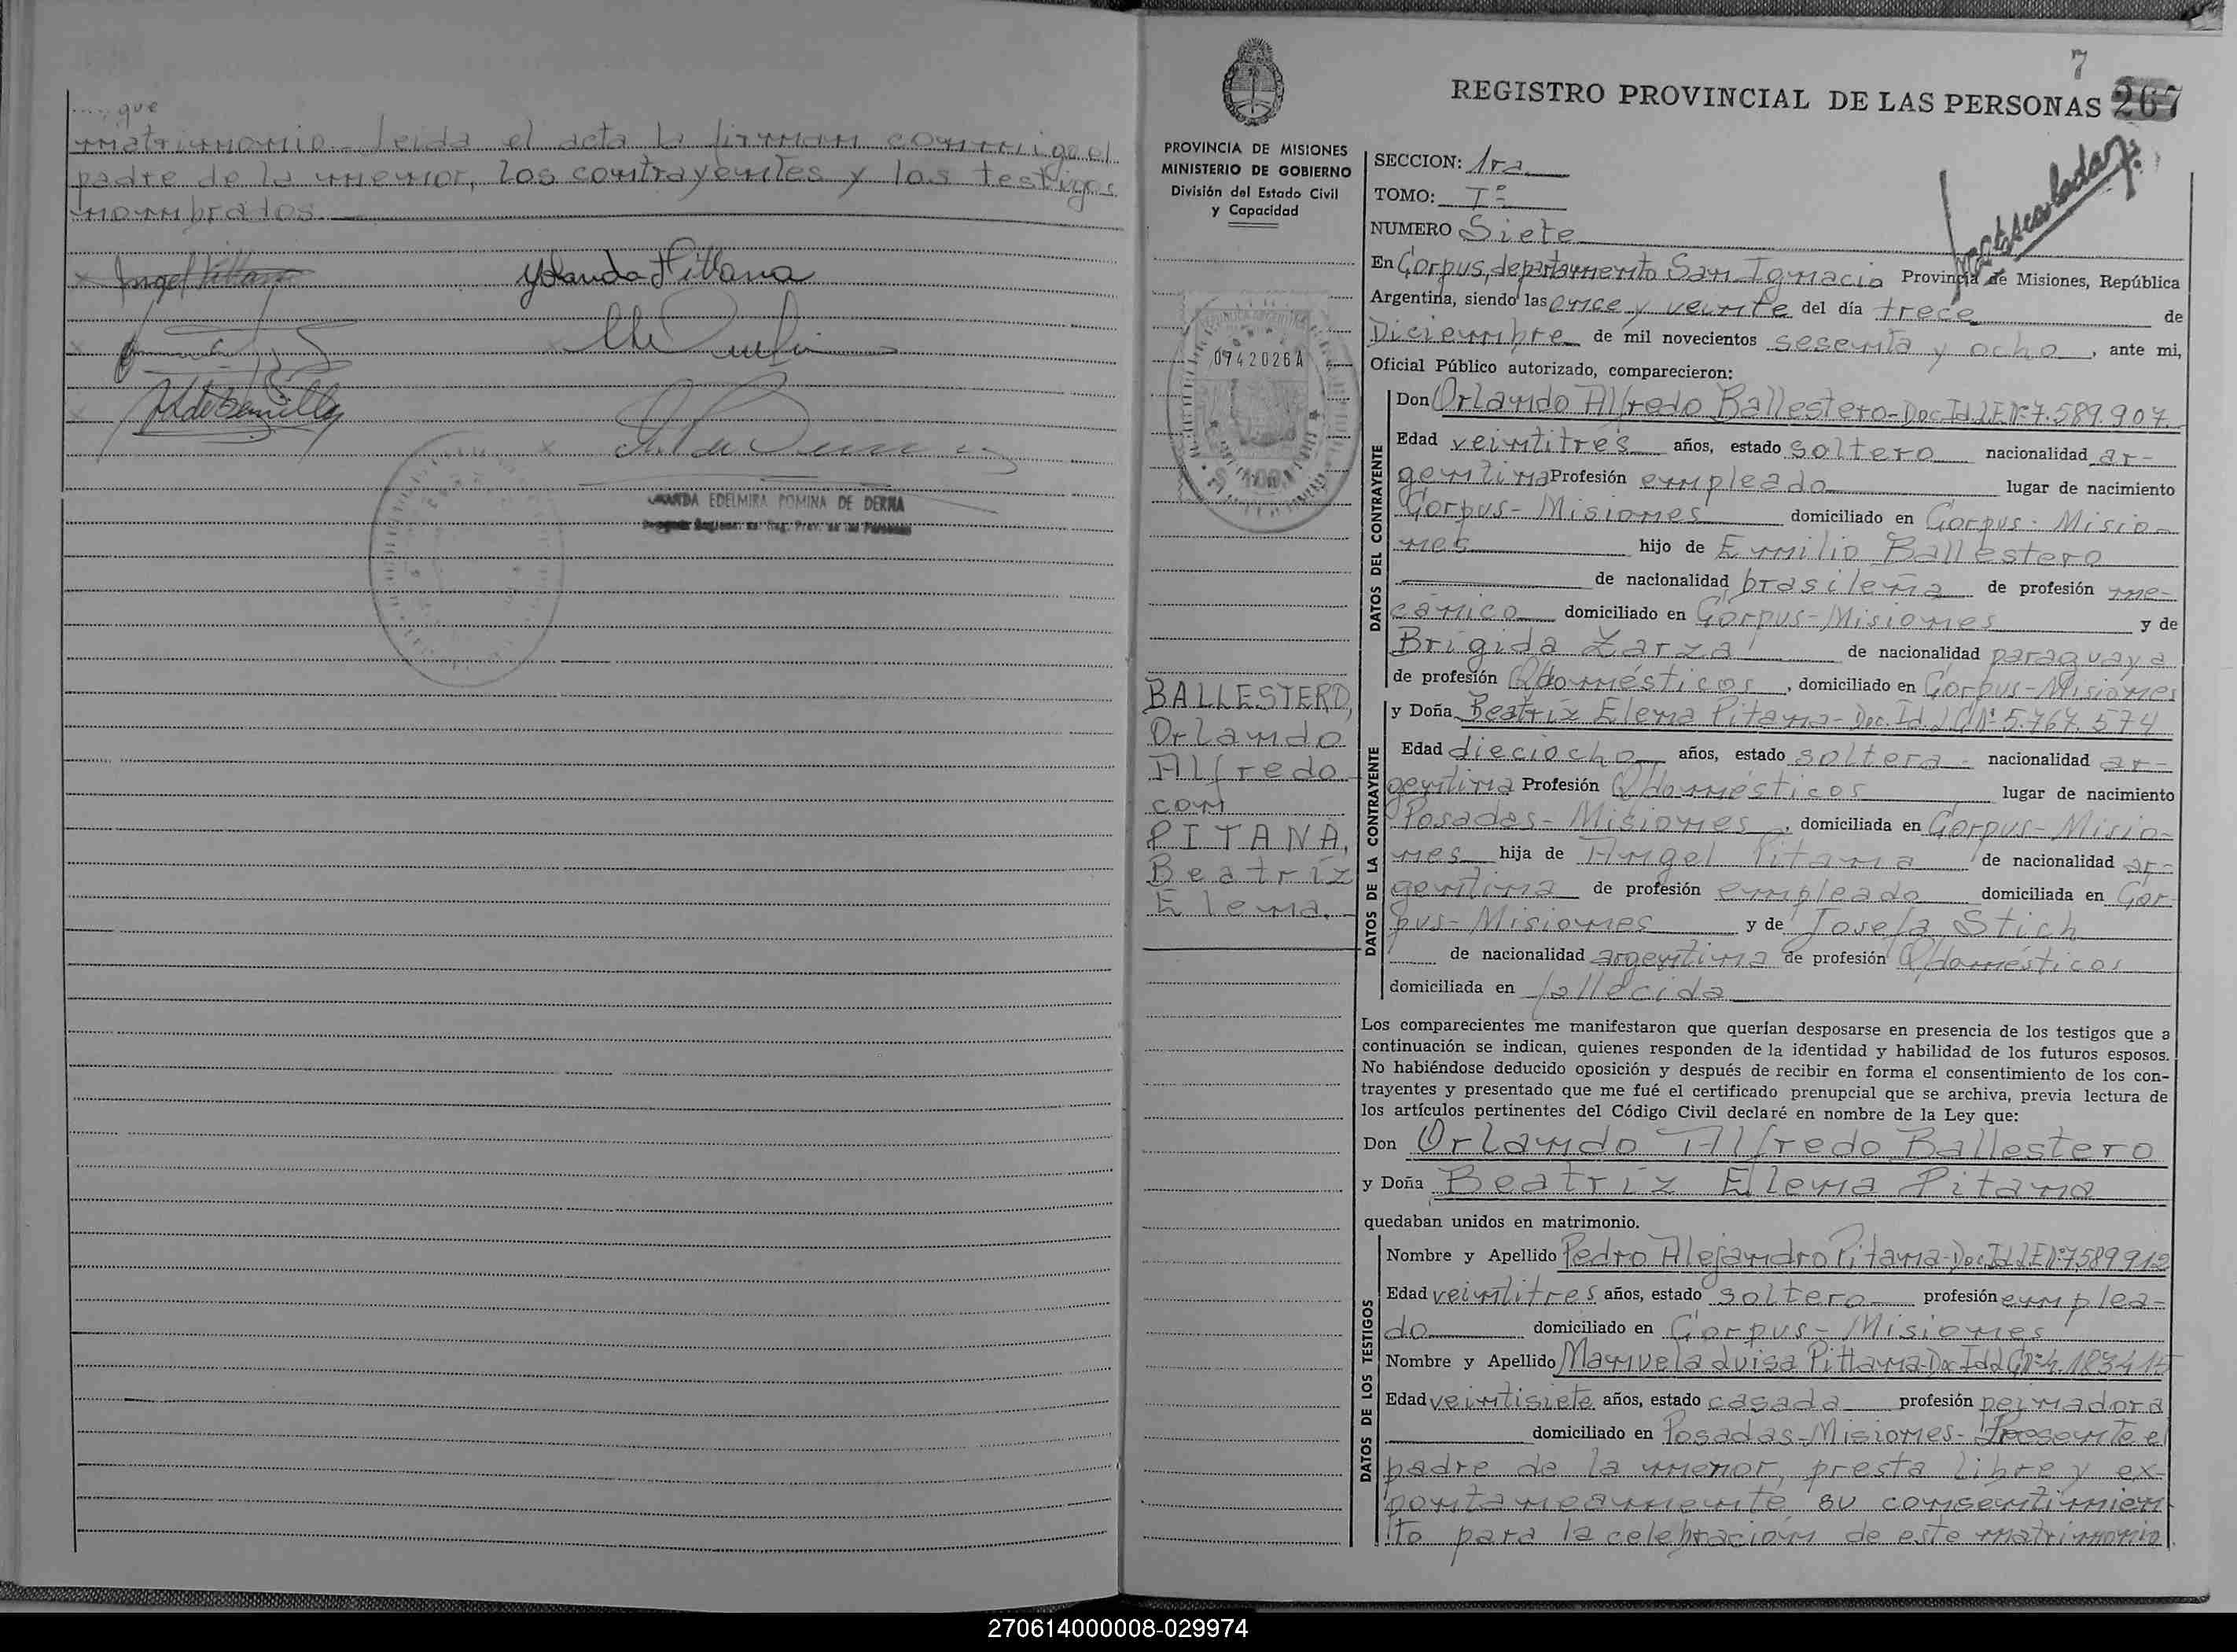 que
matrimonio. Leida el acta la firman conmigo el
padre de la menor, los contrayentes y los testigos
nombrados.
Yolanda Pittana
DE DERNA
7
REGISTRO PROVINCIAL DE LAS PERSONAS 267
PROVINCIA DE MISIONES
MINISTERIO DE GOBIERNO
División del Estado Civil
y Capacidad
0742026A
BALLESTERO,
Orlando
Alfredo
con
PITANA,
Beatríz
Elena.
SECCION: 1ra
TOMO: Iº
NUMERO Siete
En Corpus, departamento San Ignacio Provincia de Misiones, República
Argentina, siendo las once y veinte del día trece de
Diciembre de mil novecientos sesenta y ocho, ante mi,
Oficial Público autorizado, comparecieron:
DATOS DEL CONTRAYENTE
Don Orlando Alfredo Ballestero-Doc.Id.L.E.Nº7.589.907.
Edad veintitrés años, estado soltero nacionalidad ar-
gentina Profesión empleado lugar de nacimiento
Corpus- Misiones domiciliado en Corpus- Misio-
nes hijo de Emilio Ballestero
de nacionalidad brasileña de profesión me-
cánico domiciliado en Corpus-Misiones y de
Brígida Zarza de nacionalidad paraguaya
de profesión Q/domésticos, domiciliado en Corpus-Misiones
DATOS DE LA CONTRAYENTE
y Doña Beatríz Elena Pitana-Doc.Id.L.C.Nº5.767.574
Edad dieciocho años, estado soltera nacionalidad ar-
gentina Profesión Q/domésticos lugar de nacimiento
Posadas- Misiones, domiciliada en Corpus-Misio-
nes hija de Angel Pitana de nacionalidad ar-
gentina de profesión empleado domiciliada en Cor-
pus-Misiones y de Josefa Stich
de nacionalidad argentina de profesión Q/domésticos
domiciliada en fallecida
Los comparecientes me manifestaron que querían desposarse en presencia de los testigos que a
continuación se indican, quienes responden de la identidad y habilidad de los futuros esposos.
No habiéndose deducido oposición y después de recibir en forma el consentimiento de los con-
trayentes y presentado que me fué el certificado prenupcial que se archiva, previa lectura de
los artículos pertinentes del Código Civil declaré en nombre de la Ley que:
Don Orlando Alfredo Ballestero
y Doña Beatríz Elena Pitana
quedaban unidos en matrimonio.
DATOS DE LOS TESTIGOS
Nombre y Apellido Pedro Alejandro Pitana-Doc.Id.L.E.Nº7589912
Edad veintitres años, estado soltero profesión emplea-
do domiciliado en Corpus-Misiones
Nombre y Apellido Manuela Luisa Pittana-Doc.Id.L.C.Nº4.183415
Edad veintisiete años, estado casada profesión peinadora
domiciliado en Posadas-Misiones-Presente el
padre de la menor, presta libre y ex-
pontaneamente su consentimien
to para la celebración de este matrimonio
270614000008-029974